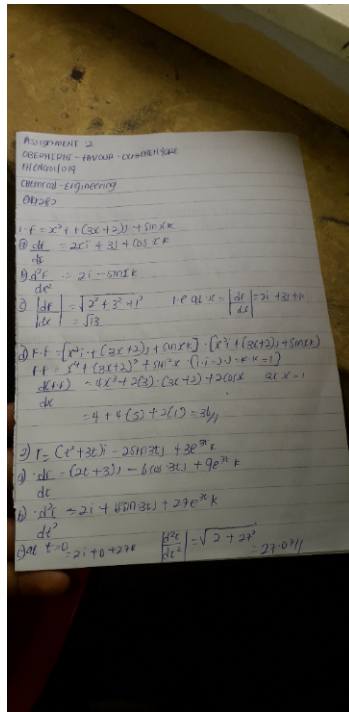 Assignment 2
Chemical-Engineering
1. F = x²i + (3x+2)j + sinxk
a) dF/dx = 2xi + 3j + cosxk
b) d²F/dx² = 2i - sinxk
c) |dF/dx| = √2²+3²+1² i.e at x = |dF/dx| = 2i + 3j + k
|dx| = √13
d) F.F = [x²i + (3x+2)j + sinxk] . [x²i + (3x+2)j + sinxk]
F.F = x⁴ + (3x+2)² + sin²x . (i.i = j.j = k.k = 1]
d(F.F)/dx = 4x³ + 2(3) . (3x+2) + 2cosx at x = 1
= 4 + 6(5) + 2(1) = 36//
2) r = (t²+3t)i - 2sin3tj + 3e³ᵗk
a) dr/dt = (2t+3)i - 6cos3tj + 9e³ᵗk
b) d²r/dt² = 2i + 18sin3tj + 27e³ᵗk
c) at t=0 = 2i + 0 + 27k |d²r/dt²| = √2 + 27² = 27.07//